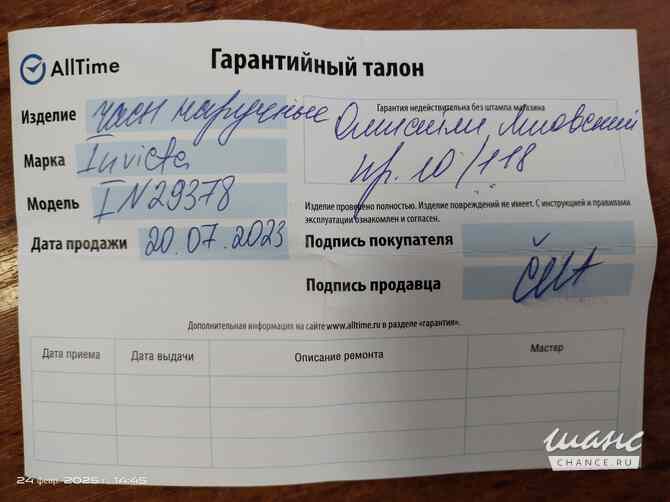 AllTime
Гарантийный талон
Изделие часы наручные
Гарантия недействительна без штампа магазина
Марка Invicta
пр. 10/118
Модель IN29378
Изделие проверено полностью. Изделие повреждений не имеет. С инструкцией и правилами
эксплуатации ознакомлен и согласен.
Дата продажи 20.07.2023
Подпись покупателя
Подпись продавца
Дополнительная информация на сайте www.alltime.ru в разделе «гарантия».
Дата приема Дата выдачи Описание ремонта Мастер
шанс
CHANCE.RU
24 февр. 2025 г. 14:45